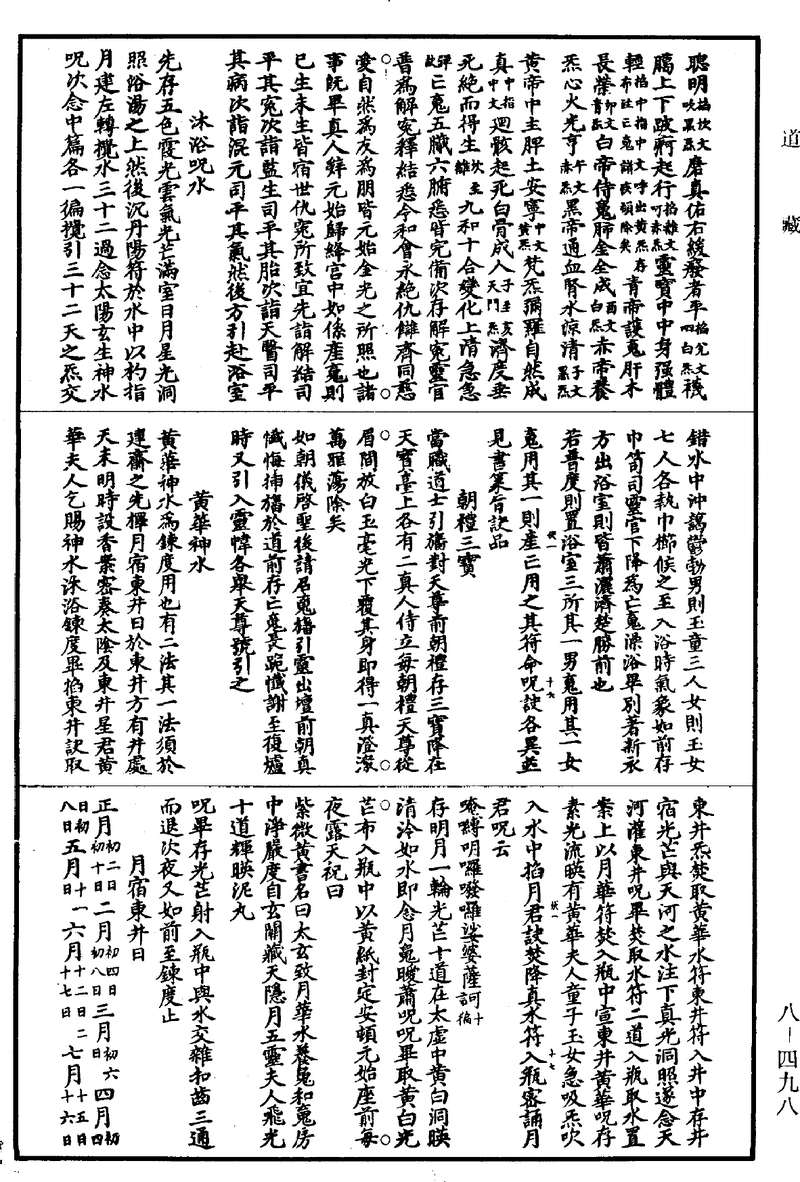 道藏
聰明掐坎文吹黑炁磨真佑右緩發者平掐兌文四白炁襪
腸上下跛痾起行掐離文呵赤炁靈寶中中身强體
輕掐中指中文呼出黃炁存布注亡魂諸疾頓除矣青帝護魂肝木
長榮卯文青炁白帝侍魄肺金全成酉文白炁赤帝養
炁心火光亨午文赤炁黑帝通血腎水涼清子文黑炁
黃帝中主脾土安寧中文黃炁梵炁彌羅自然成
真中指中文迴骸起死白骨成人子至亥天門炁濟度垂
死絶而得生坎至離九和十合變化上清急急
亡魂五臟六腑悉皆完備次存解寃靈官
普為解寃釋結悉令和會永絶仇讎齊同慈
愛自然為友為朋皆元始金光之所照也諸
事既畢真人辭元始歸絳宮中如係產魂則
已生未生皆宿世仇寃所致宜先詣解結司
平其寃次詣監生司平其胎次詣天醫司平
其病次詣混元司平其氣然後方引赴浴室
沐浴呪水
先存五色霞光雲氣光芒滿室日月星光洞
照浴湯之上然後沉丹陽符於水中以杓指
月建左轉攪水三十二過念太陽玄生神水
呪次念中篇各一徧攪引三十二天之炁交
錯水中沖藹鬱勃男則玉童三人女則玉女
七人各執巾櫛候之至入浴時氣象如前存
巾笥司靈官下降為亡魂澡浴畢別著新衣
方出浴室則皆蕭灑濟楚勝前也
若普度則置浴室三所其一男魂用其一女
魂用其一則產亡用之其符命呪訣各異並
見書篆旨訣品
朝禮三寶
當職道士引旛對天尊前朝禮存三寶降在
天寶臺上各有二真人侍立每朝禮天尊從
眉間放白玉毫光下覆其身即得一真澄湛
萬罪蕩除矣
如朝儀啓聖後請召魂旛引靈出壇前朝真
懺悔揷旛於道前存亡魂長跪懺謝至復爐
時又引入靈幃各舉天尊號引之
黃華神水
黃華神水為鍊度用也有二法其一法須於
建齋之先擇月宿東井日於東井方有井處
天未明時設香案密奏太陰及東井星君黃
華夫人乞賜神水沐浴鍊度畢掐東井訣取
東井炁焚取黃華水符東井符入井中存井
宿光芒與天河之水注下真光洞照遂念天
河灌東井呪畢焚取水符二道入瓶取水置
案上以月華符焚入瓶中宣東井黃華呪存
素光流暎有黃華夫人童子玉女急吸炁吹
入水中掐月君訣焚降真水符入瓶密誦月
君呪云
唵嚩明囉發囉娑婆薩訶十徧
存明月一輪光芒十道在太虛中黃白洞暎
清泠如水即念月魂曖蕭呪呪畢取黃白光
芒布入瓶中以黃紙封定安頓元始座前每
夜露天祝曰
紫微黃書名曰太玄致月華水養魄和魂房
中淨嚴度自玄關藏天隱月五靈夫人飛光
十道輝暎泥丸
呪畢存光芒射入瓶中與水交雜扣齒三通
而退次夜又如前至鍊度止
月宿東井日
正月初二日初十日二月初四日初八日三月初六日四月初四
日初八日五月十一日六月十二日二十七日七月十五日十六日
八－四九八